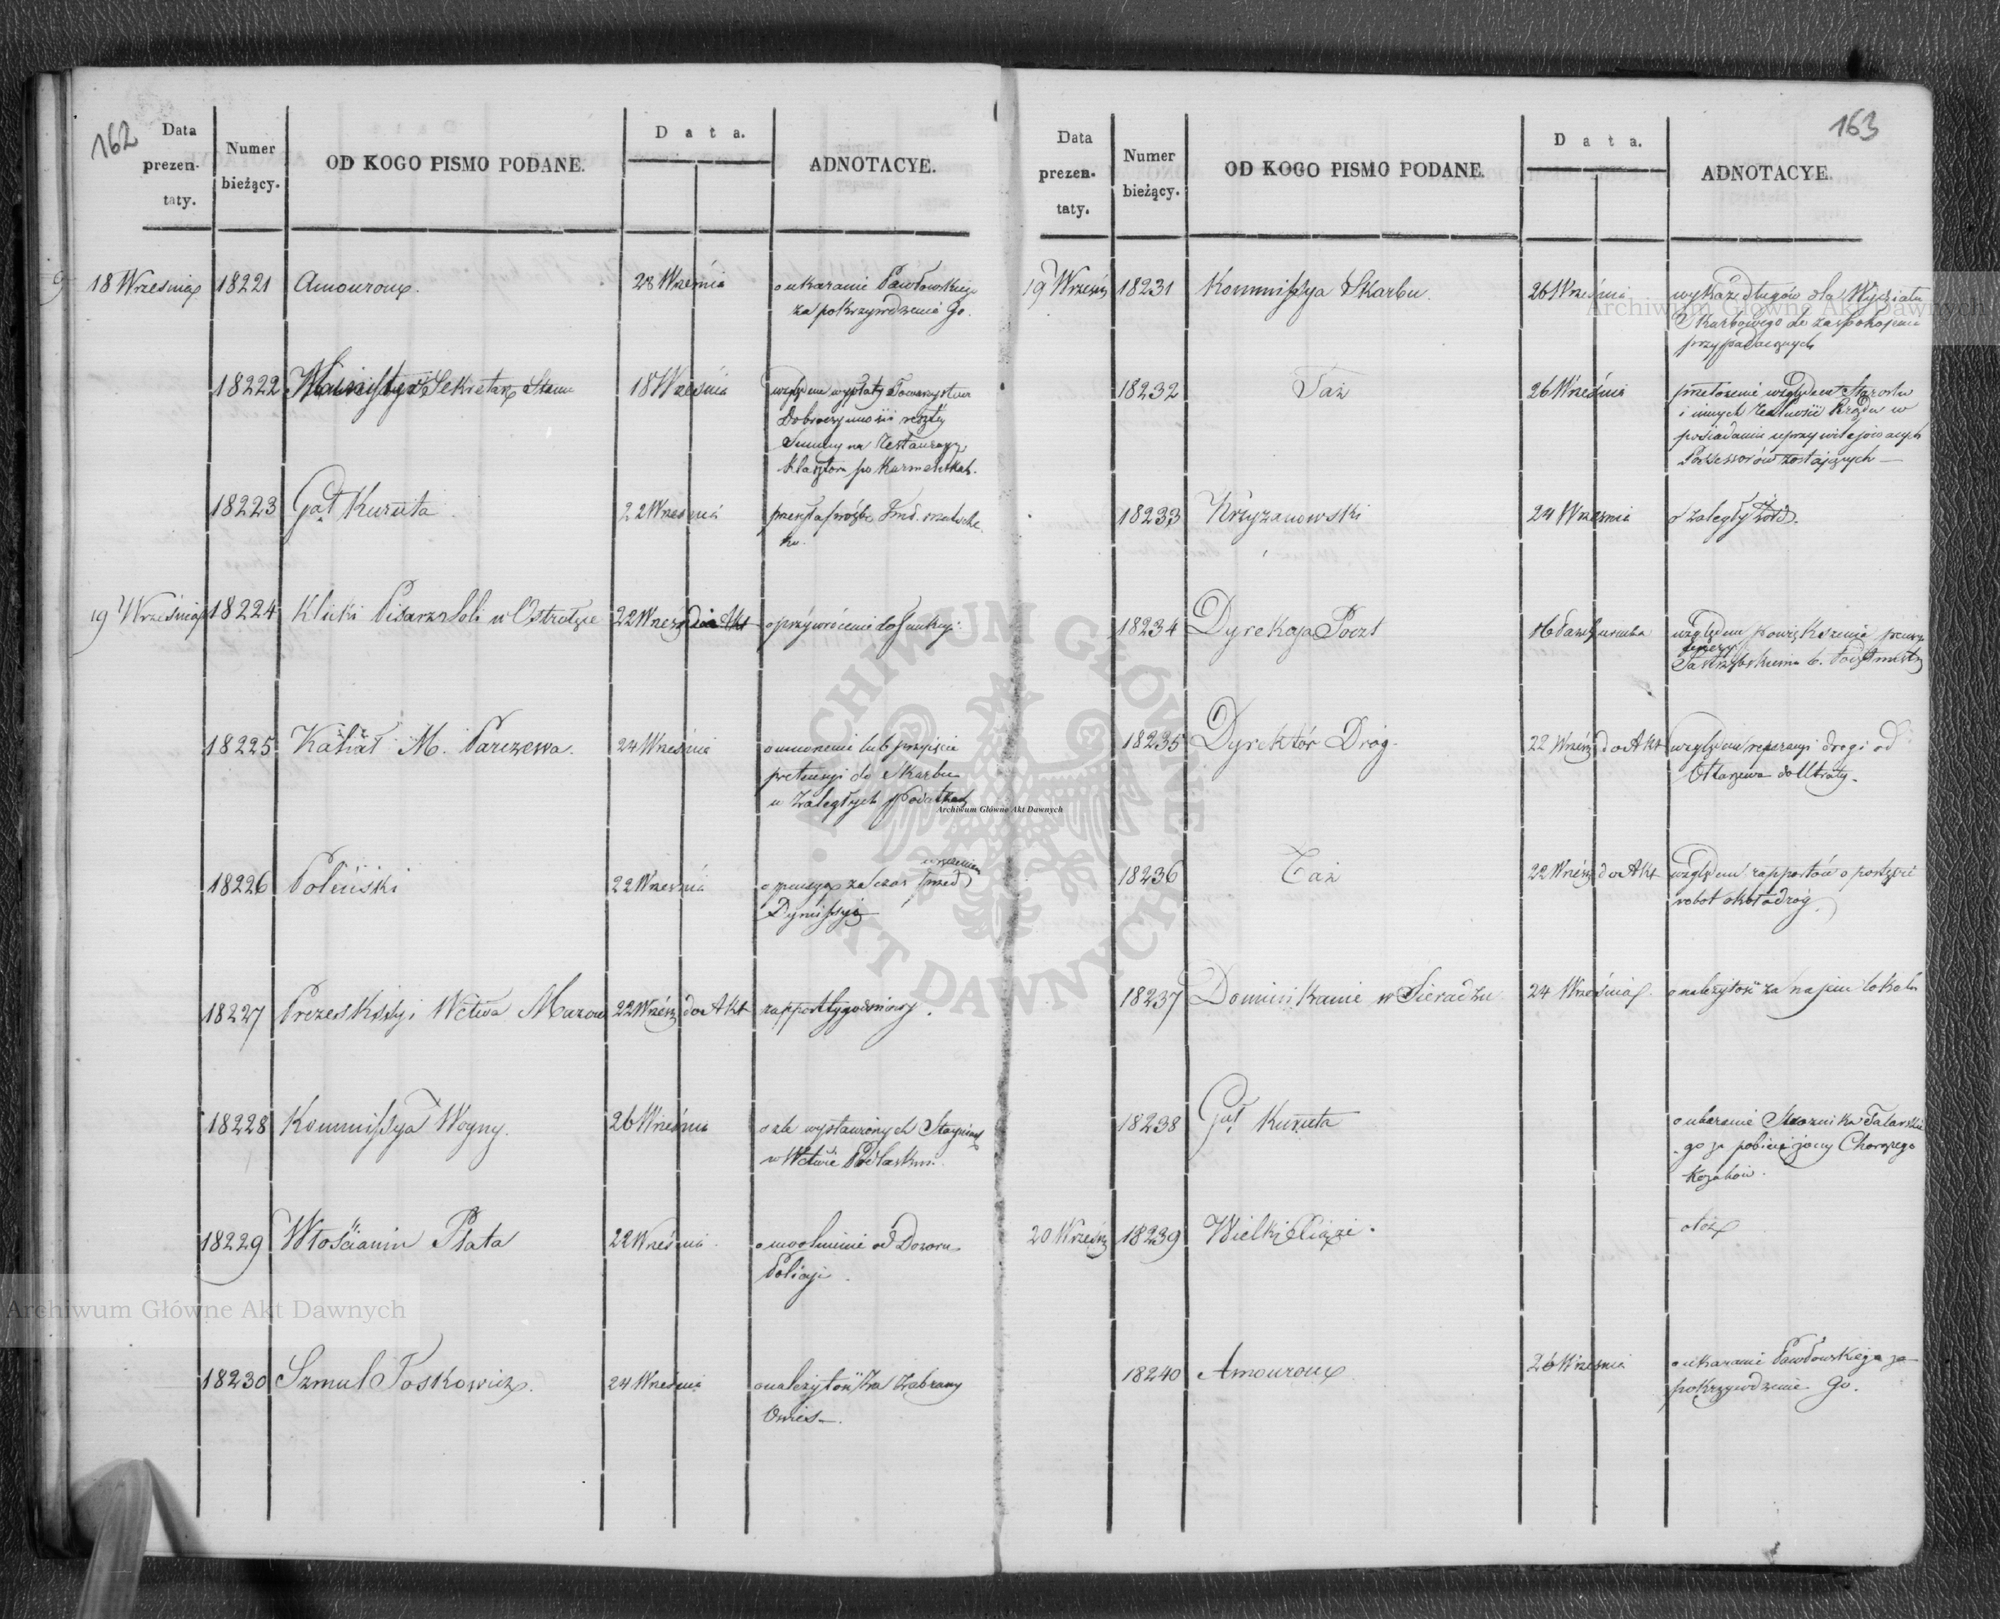 162
Data prezentaty.
Numer bieżący.
OD KOGO PISMO PODANE.
Data.
ADNOTACYE.
18 Września 18221 Amouroux. 28 Września o ukaranie Pawłowskiego
za pokrzywdzenie Go.
18222 Minister Sekretarz Stanu 18 Września względem wypłaty Towarzystwu
Dobroczynności reszty
Summy na Restauracyą
Klasztoru po Karmelitkach.
18223 Gał Kuruta 22 Września
18224 Klicki Pisarz Soli w Ostrołęce 22 Wrześ do Akt o przywrócenie do funkcyi
18225 Kahał M. Parczewa. 24 Września o umorzenie lub przyjęcie
pretensyi do Skarbu
w zaległych Podatkach
18226 Poliński 22 Września o pensyą za czas przed
wzięciem
Dymissyi
18227 Prezes Kissyi Wctwa Mazow 22 Wrześ do Akt rapport tygodniowy.
18228 Kommissya Woyny. 26 Września o źle wystawionych Stayniach
w Wctwie Podlaskm.
18229 Włościanin Płata 22 Września o uwolnienie od Dozoru
Policyi.
18230 Szmul Joskowicz. 24 Września o należytość za zabrany
Owies.
163
Data prezentaty.
Numer bieżący.
OD KOGO PISMO PODANE.
Data.
ADNOTACYE.
19 Wrześń 18231 Kommissya Skarbu. 26 Września wykaz długów dla Wydziału
Skarbowego do zaspokojenia
przypadających
18232 Taż 26 Września przełożenie względem Starostw
i innych Realności Rządu w
posiadaniu uprzywilejowanych
Possessorów zostających
18233 Krzyzanowski 24 Września o zaległy żołd.
18234 Dyrekcya Poczt względem powiększenia pensyi
Jastrzębskiemu b. Pocztmistrz
18235 Dyrektór Dróg. 22 Wrześ do Akt względem reperacyi drogi od
Ołtarzewa do Utraty.
18236 Taż 22 Wrześ do Akt względem rapportów o postępie
robot około dróg.
18237 Dominikanie w Sieradzu 24 Września o należytość za najem lokalu
18238 Gał Kuruta o ukaranie Strażnika Tatarskie
go za pobicie żony Chorążego
Kozaków.
20 Wrześń 18239 Wielki Xiąże. otoż
18240 Amouroux 26 Września o ukaranie Pawłowskiego za
pokrzywdzenie Go.
Archiwum Główne Akt Dawnych
Archiwum Główne Akt Dawnych
Archiwum Główne Akt Dawnych
ARCHIWUM GŁÓWNE AKT DAWNYCH